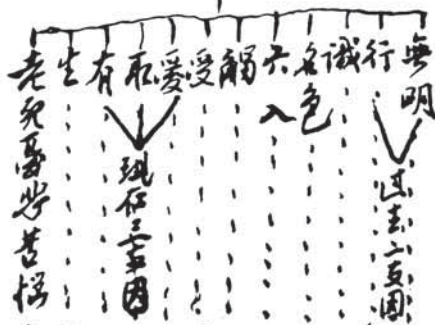 無明
行
識
名色
六入
觸
受
愛
取
有
生
老死憂悲苦惱
过去二支因
現在三支因